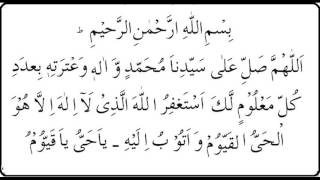 بِسْمِ اللّٰهِ ارَّحْمٰنِ الرَّحِيْمِ ط
اَللّٰهُمَّ صَلِّ عَلٰى سَيِّدِنَا مُحَمَّدٍ وَّ اٰلِهٖ وَعِتْرَتِهٖ بِعَدَدِ
كُلِّ مَعْلُوْمٍ لَّكَ اَسْتَغْفِرُ اللّٰهَ الَّذِىْ لَآ اِلٰهَ اِلَّا هُوَ
الْحَىُّ الْقَيُّوْمُ وَ اَتُوْبُ اِلَيْهِ ـ يَاحَىُّ يَا قَيُّوْمُ